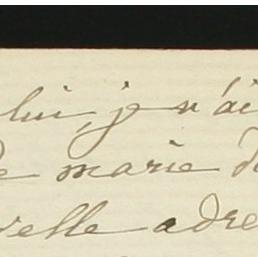 lui, je n'ai
de marie d
velle adre